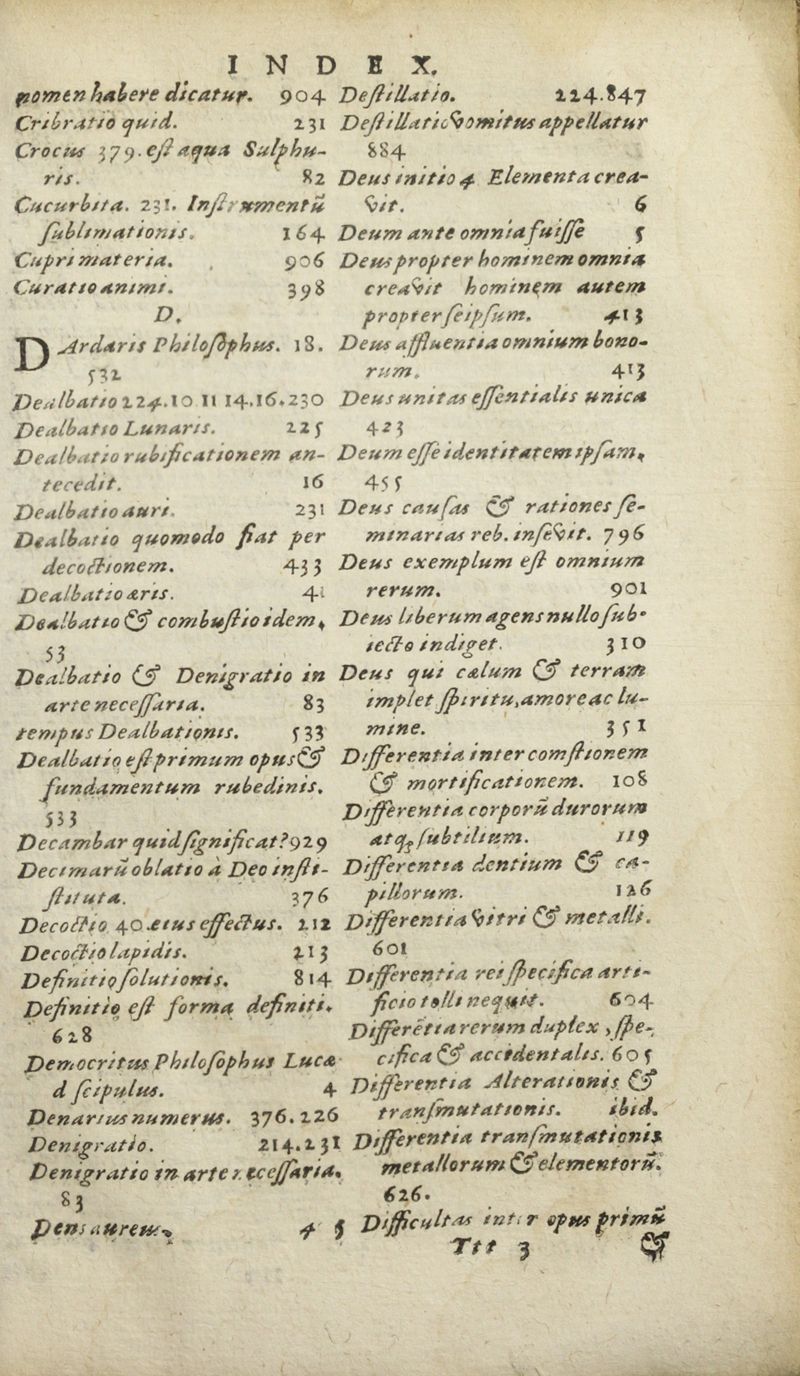 INDEX.
nomen habere dicatur. 904
Cribratio quid. 231
Crocus 379. eſt aqua Sulphu-
ris. 82
Cucurbita. 231. Inſtrumentũ
ſublimationis. 164
Cupri materia. 906
Curatio animi. 398
D.
DArdaris Philoſophus. 18.
532
Dealbatio 224.10 11 14.16.230
Dealbatio Lunaris. 225
Dealbatio rubificationem an-
tecedit. 16
Dealbatio auri. 231
Dealbatio quomodo fiat per
decoctionem. 433
Dealbatio æris. 41
Dealbatio & combuſtio idem.
53
Dealbatio & Denigratio in
arte neceſſaria. 83
tempus Dealbationis. 533
Dealbatio eſt primum opus &
fundamentum rubedinis.
533
Decambar quid ſignificat? 929
Decimarũ oblatio à Deo inſti-
ſtituta. 376
Decoctio 40. eius effectus. 212
Decoctio lapidis. 213
Definitio ſolutionis. 814
Definitio eſt forma definiti.
628
Democritus Philoſophus Lucæ
d ſcipulus. 4
Denarius numerus. 376.226
Denigratio. 214.231
Denigratio in arte neceſſaria.
83
Dens aureus. 4 5
Deſtillatio. 224.847
Deſtillatio vomitus appellatur
884
Deus initio 4 Elementa crea-
vit. 6
Deum ante omnia fuiſſe 5
Deus propter hominem omnia
creavit hominem autem
propter ſeipſum. 413
Deus affluentia omnium bono-
rum. 413
Deus unitas eſſentialis unica
423
Deum eſſe identitatem ipſam.
455
Deus cauſas & rationes ſe-
minarias reb. inſevit. 796
Deus exemplum eſt omnium
rerum. 901
Deus liberum agens nullo ſub-
iecto indiget. 310
Deus qui cælum & terram
implet ſpiritu, amore ac lu-
mine. 351
Differentia inter comſtionem
& mortificationem. 108
Differentia corporũ durorum
atq; ſubtilium. 119
Differentia dentium & ca-
pillorum. 126
Differentia vitri & metalli.
601
Differentia rei ſpecifica arti-
ficio tolli nequit. 604
Differẽtia rerum duplex, ſpe-
cifica & accidentalis. 605
Differentia Alterationis &
tranſmutationis. ibid.
Differentia tranſmutationis
metallorum & elementorũ.
626.
Difficultas inter opus primũ
Ttt 3 &